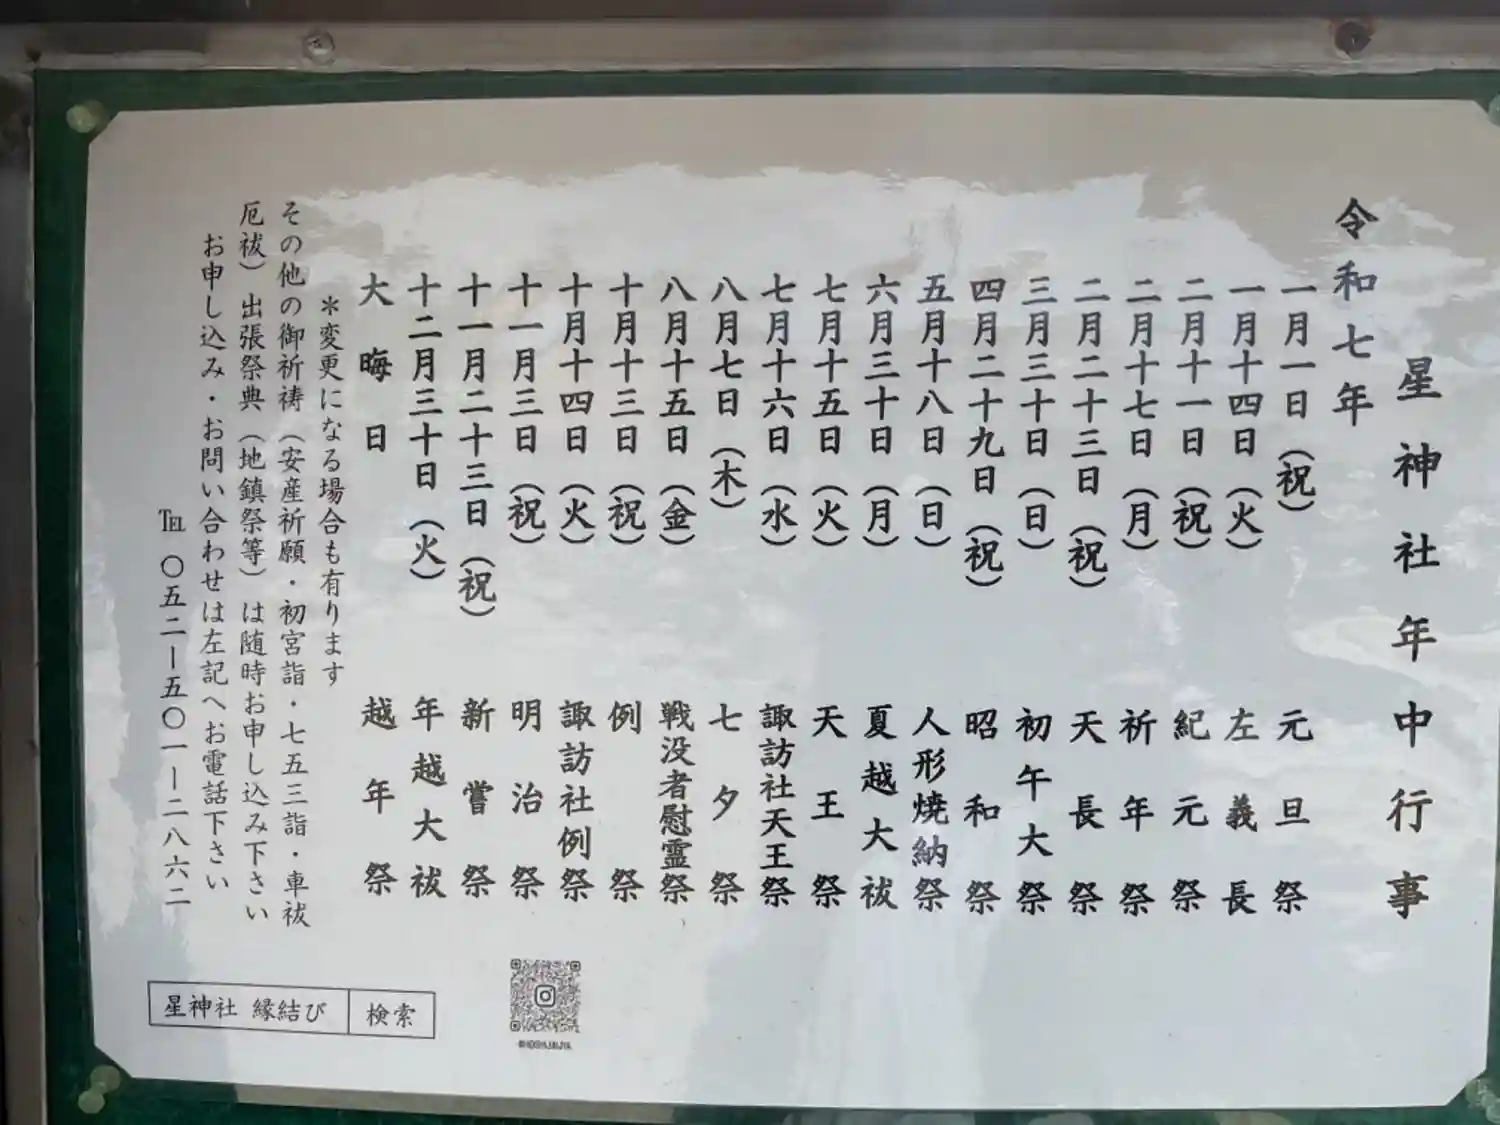 星神社年中行事
令和七年
一月一日(祝) 元旦祭
一月十四日(火) 左義長
二月十一日(祝) 紀元祭
二月十七日(月) 祈年祭
二月二十三日(祝) 天長祭
三月三十日(日) 初午大祭
四月二十九日(祝) 昭和祭
五月十八日(日) 人形焼納祭
六月三十日(月) 夏越大祓
七月十五日(火) 天王祭
七月十六日(水) 諏訪社天王祭
八月七日(木) 七夕祭
八月十五日(金) 戦没者慰霊祭
十月十三日(祝) 例祭
十月十四日(火) 諏訪社例祭
十一月三日(祝) 明治祭
十一月二十三日(祝) 新嘗祭
十二月三十日(火) 年越大祓
大晦日 越年祭
＊変更になる場合も有ります
その他の御祈祷(安産祈願・初宮詣・七五三詣・車祓
厄祓)出張祭典(地鎮祭等)は随時お申し込み下さい
お申し込み・お問い合わせは左記へお電話下さい
℡ 〇五二ー五〇一ー二八六二
星神社 縁結び 検索